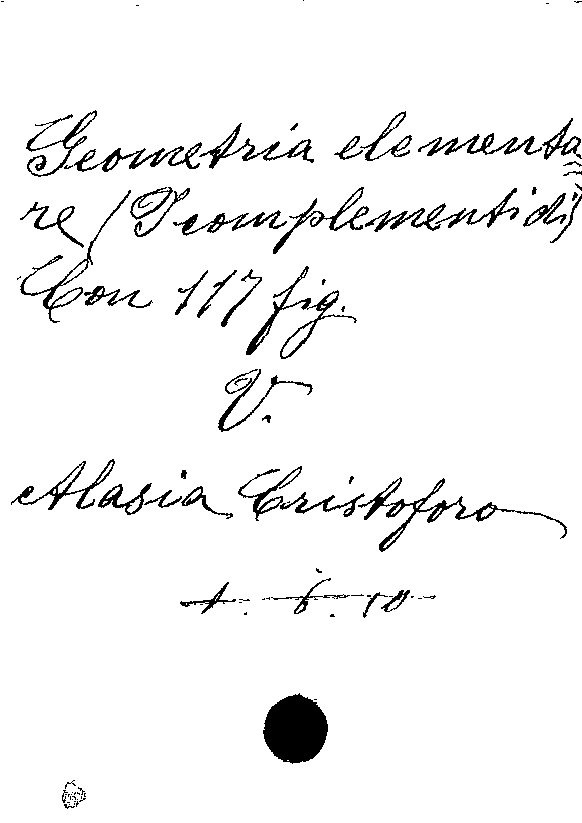 Geometria elementa
re (I complementi di)
Con 117 fig.
V.
Alasia Cristoforo
1. 6. 10